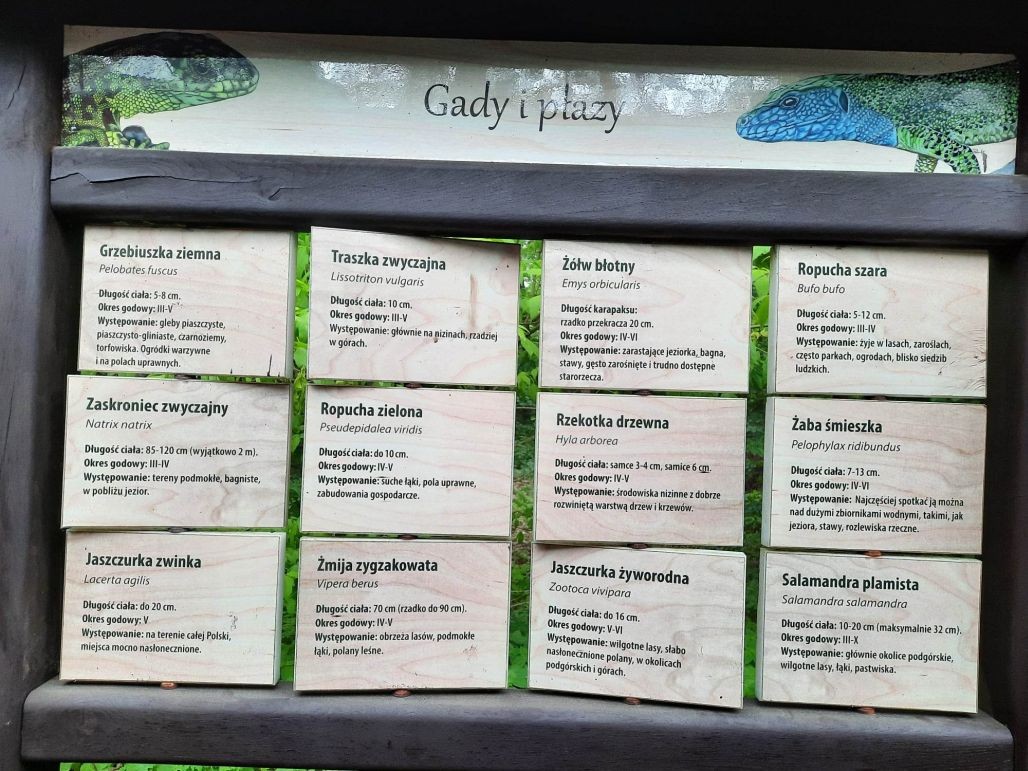 Gady i płazy
Grzebiuszka ziemna
Pelobates fuscus
Długość ciała: 5-8 cm.
Okres godowy: III-V
Występowanie: gleby piaszczyste,
piaszczysto-gliniaste, czarnoziemy,
torfowiska. Ogródki warzywne
i na polach uprawnych.
Traszka zwyczajna
Lissotriton vulgaris
Długość ciała: 10 cm.
Okres godowy: III-V
Występowanie: głównie na nizinach, rzadziej
w górach.
Żółw błotny
Emys orbicularis
Długość karapaksu:
rzadko przekracza 20 cm.
Okres godowy: IV-VI
Występowanie: zarastające jeziorka, bagna,
stawy, gęsto zarośnięte i trudno dostępne
starorzecza.
Ropucha szara
Bufo bufo
Długość ciała: 5-12 cm.
Okres godowy: III-IV
Występowanie: żyje w lasach, zaroślach,
często parkach, ogrodach, blisko siedzib
ludzkich.
Zaskroniec zwyczajny
Natrix natrix
Długość ciała: 85-120 cm (wyjątkowo 2 m).
Okres godowy: III-IV
Występowanie: tereny podmokłe, bagniste,
w pobliżu jezior.
Ropucha zielona
Pseudepidalea viridis
Długość ciała: do 10 cm.
Okres godowy: IV-V
Występowanie: suche łąki, pola uprawne,
zabudowania gospodarcze.
Rzekotka drzewna
Hyla arborea
Długość ciała: samce 3-4 cm, samice 6 cm.
Okres godowy: IV-V
Występowanie: środowiska nizinne z dobrze
rozwiniętą warstwą drzew i krzewów.
Żaba śmieszka
Pelophylax ridibundus
Długość ciała: 7-13 cm.
Okres godowy: IV-VI
Występowanie: Najczęściej spotkać ją można
nad dużymi zbiornikami wodnymi, takimi, jak
jeziora, stawy, rozlewiska rzeczne.
Jaszczurka zwinka
Lacerta agilis
Długość ciała: do 20 cm.
Okres godowy: V
Występowanie: na terenie całej Polski,
miejsca mocno nasłonecznione.
Żmija zygzakowata
Vipera berus
Długość ciała: 70 cm (rzadko do 90 cm).
Okres godowy: IV-V
Występowanie: obrzeża lasów, podmokłe
łąki, polany leśne.
Jaszczurka żyworodna
Zootoca vivipara
Długość ciała: do 16 cm.
Okres godowy: V-VI
Występowanie: wilgotne lasy, słabo
nasłonecznione polany, w okolicach
podgórskich i górach.
Salamandra plamista
Salamandra salamandra
Długość ciała: 10-20 cm (maksymalnie 32 cm).
Okres godowy: III-X
Występowanie: głównie okolice podgórskie,
wilgotne lasy, łąki, pastwiska.